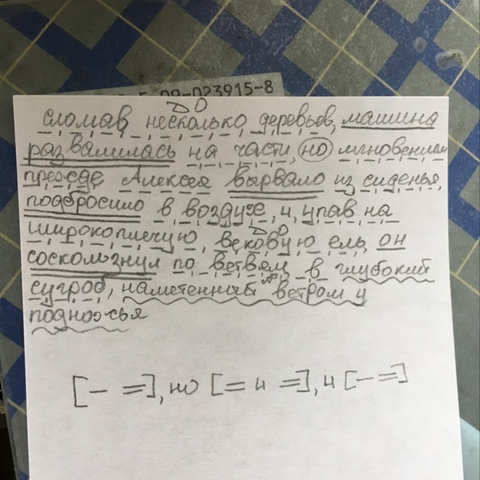 09-023915-8
д о
сломав несколько деревьев, машина
развалилась на части, но мгновением
прежде Алексея вырвало из сиденья,
подбросило в воздух, и, упав на
д о
широкоплечую, вековую ель, он
соскользнул по ветвям в глубокий
сугроб, наметенный ветром у
подножья
[— =], но [= и =], и [— =]